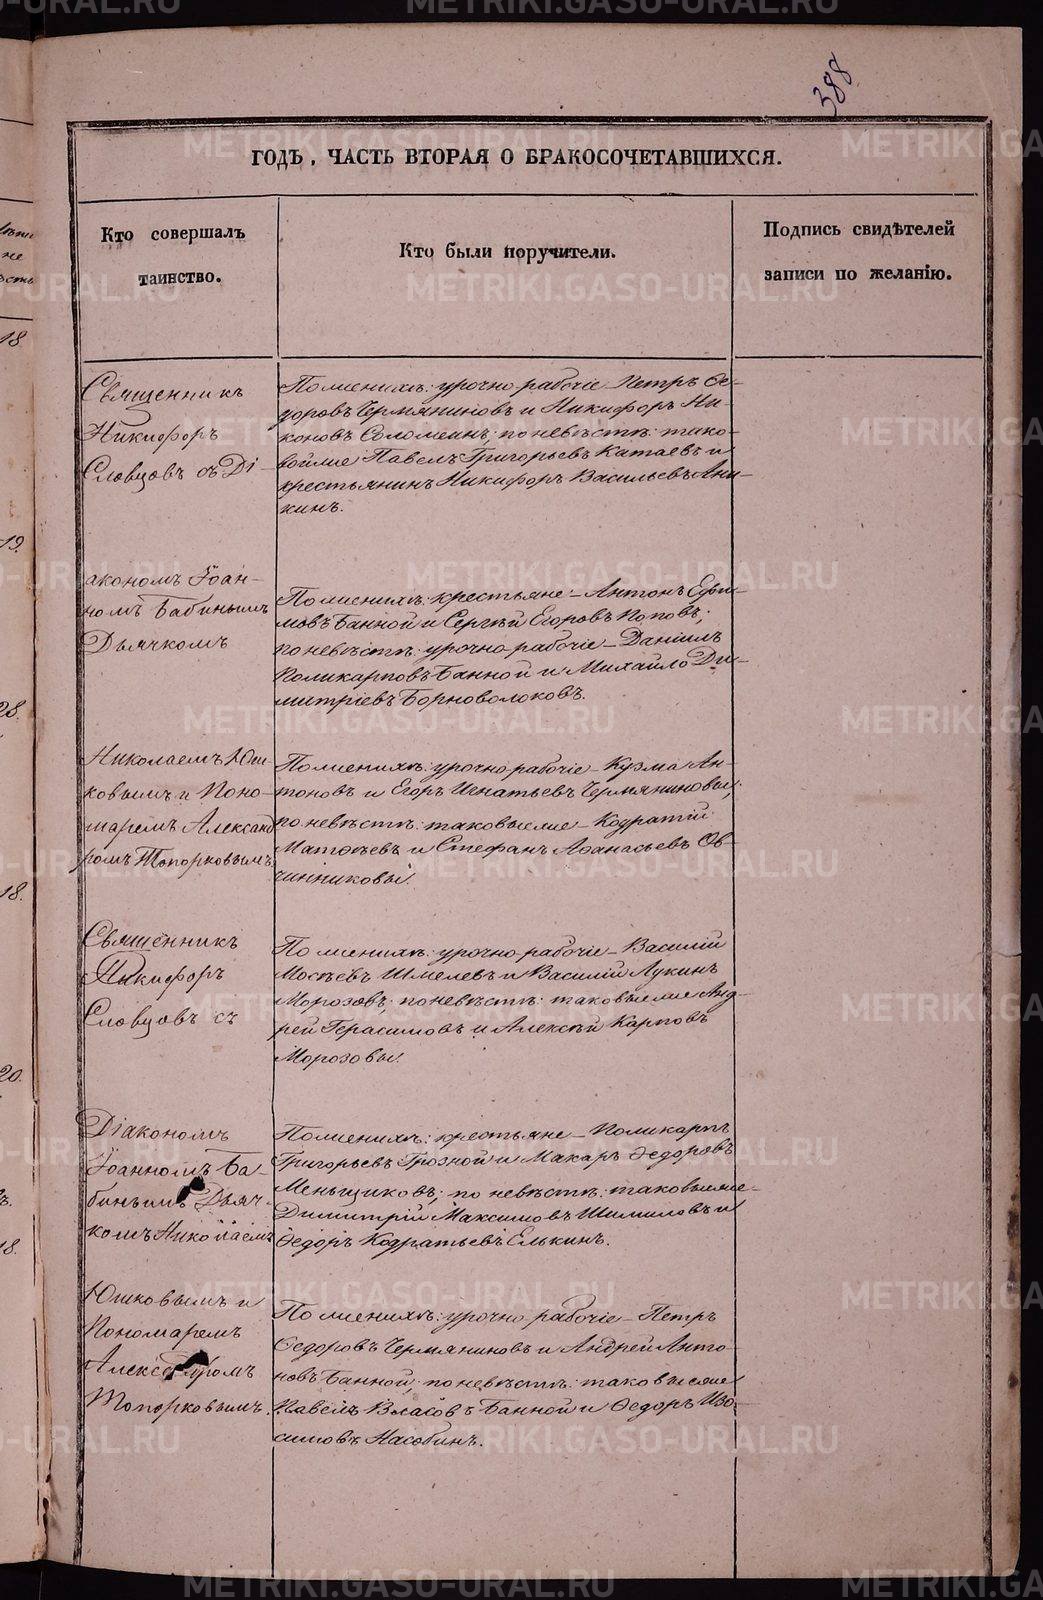 388
ГОДЪ, ЧАСТЬ ВТОРАЯ О БРАКОСОЧЕТАВШИХСЯ.
Кто совершалъ
таинство.
Кто были поручители.
Подпись свидѣтелей
записи по желанію.
18
19.
28.
18.
20.
18.
Священникъ
Никифоръ
Словцовъ съ Ді-
По женихѣ: урочно рабочіе – Петръ Ѳе-
доровъ Чермяниновъ и Никифоръ Ни-
коновъ Соломеинъ; по невѣстѣ: тако-
вой же Павелъ Григорьевъ Катаевъ и
крестьянинъ Никифоръ Васильевъ Ани-
кинъ.
акономъ Іоан-
номъ Бабинымъ
Дьячкомъ
По женихѣ: крестьяне – Антонъ Ефи-
мовъ Банной и Сергѣй Егоровъ Поповъ;
по невѣстѣ: урочно рабочіе – Даніилъ
Поликарповъ Банной и Михайло Ди-
митріевъ Борноволоковъ.
Николаемъ Юш-
ковымъ и Поно-
маремъ Александ
ромъ Топорковымъ.
По женихѣ: урочно рабочіе – Кузма Ан-
тоновъ и Егоръ Игнатьевъ Чермяниновы;
по невѣстѣ: таковые же – Кодратій
Матѳѣевъ и Стефанъ Аѳанасьевъ Ов-
чинниковы.
Священникъ
Никифоръ
Словцовъ съ
По женихѣ: урочно рабочіе – Василій
Мосѣевъ Шмелевъ и Василій Лукинъ
Морозовъ; по невѣстѣ: таковые же Анд-
рей Герасимовъ и Алексѣй Карповъ
Морозовы.
Діакономъ
Іоанномъ Ба-
бинымъ Дьяч-
комъ Николаемъ
По женихѣ: крестьяне – Поликарпъ
Григорьевъ Грозной и Макаръ Ѳедоровъ
Меньщиковъ; по невѣстѣ: таковые же –
Димитрій Максимовъ Шимиловъ и
Ѳедоръ Кодратьевъ Елькинъ.
Юшковымъ и
Пономаремъ
Александромъ
Топорковымъ.
По женихѣ: урочно рабочіе – Петръ
Ѳедоровъ Чермяниновъ и Андрей Анто-
новъ Банной; по невѣстѣ: таковые же
Павелъ Власовъ Банной и Ѳедоръ Изо-
симовъ Насобинъ.
METRIKI.GASO-URAL.RU